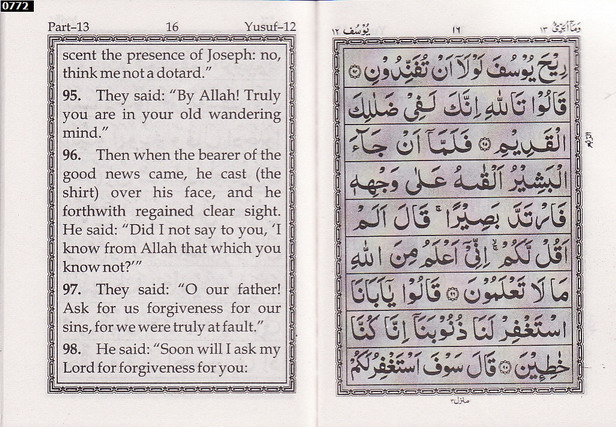 0772
Part–13 16 Yusuf–12
scent the presence of Joseph: no,
think me not a dotard.”
95. They said: “By Allah! Truly
you are in your old wandering
mind.”
96. Then when the bearer of the
good news came, he cast (the
shirt) over his face, and he
forthwith regained clear sight.
He said: “Did I not say to you, ‘I
know from Allah that which you
know not?’”
97. They said: “O our father!
Ask for us forgiveness for our
sins, for we were truly at fault.”
98. He said: “Soon will I ask my
Lord for forgiveness for you:
وَمَآ اُبَرِّئُ ١٣ ١٦ يُوْسُف ١٢
رِيْحَ يُوْسُفَ لَوْلَآ اَنْ تُفَنِّدُوْنِ ﴿٩٤﴾
قَالُوْا تَاللّٰهِ اِنَّكَ لَفِيْ ضَلٰلِكَ
الْقَدِيْمِ ﴿٩٥﴾ فَلَمَّآ اَنْ جَآءَ
الْبَشِيْرُ اَلْقٰىهُ عَلٰى وَجْهِهٖ
فَارْتَدَّ بَصِيْرًا ۚ قَالَ اَلَمْ
اَقُلْ لَّكُمْ ۚ اِنِّيْٓ اَعْلَمُ مِنَ اللّٰهِ
مَا لَا تَعْلَمُوْنَ ﴿٩٦﴾ قَالُوْا يٰٓاَبَانَا
اسْتَغْفِرْ لَنَا ذُنُوْبَنَآ اِنَّا كُنَّا
خٰطِـِٕيْنَ ﴿٩٧﴾ قَالَ سَوْفَ اَسْتَغْفِرُ لَكُمْ
منزل ٣